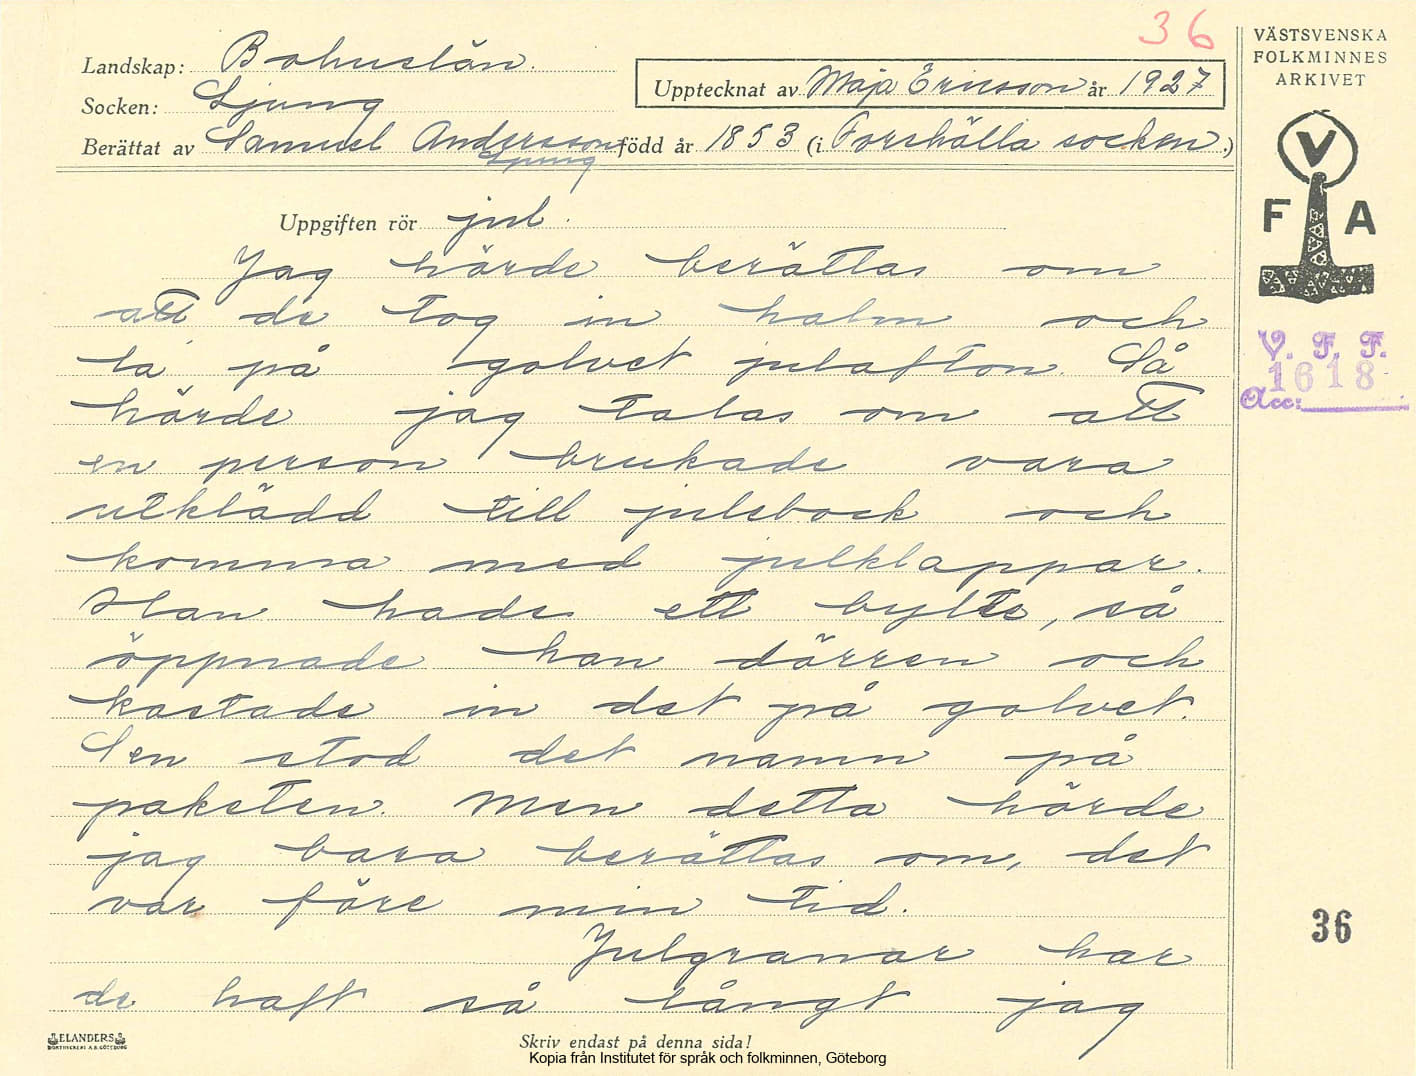 36
Landskap: Bohuslän.
Socken: Ljung
Upptecknat av Maja Ericsson år 1927
Berättat av Samuel Andersson född år 1853 (i Forshälla socken.)
Ljung
VÄSTSVENSKA
FOLKMINNES
ARKIVET
V
F A
V. F. F.
1618
Acc:
Uppgiften rör jul.
Jag hörde berättas om
att de tog in halm och
la på golvet julafton. Så
hörde jag talas om att
en person brukade vara
utklädd till julebock och
komma med julklappar.
Han hade ett bylte, så
öppnade han dörren och
kastade in det på golvet.
Sen stod det namn på
paketen. Men detta hörde
jag bara berättas om, det
var före min tid.
Julgranar har
de haft så långt jag
36
ELANDERS
BOKTRYCKERI A.B. GÖTEBORG
Skriv endast på denna sida!
Kopia från Institutet för språk och folkminnen, Göteborg